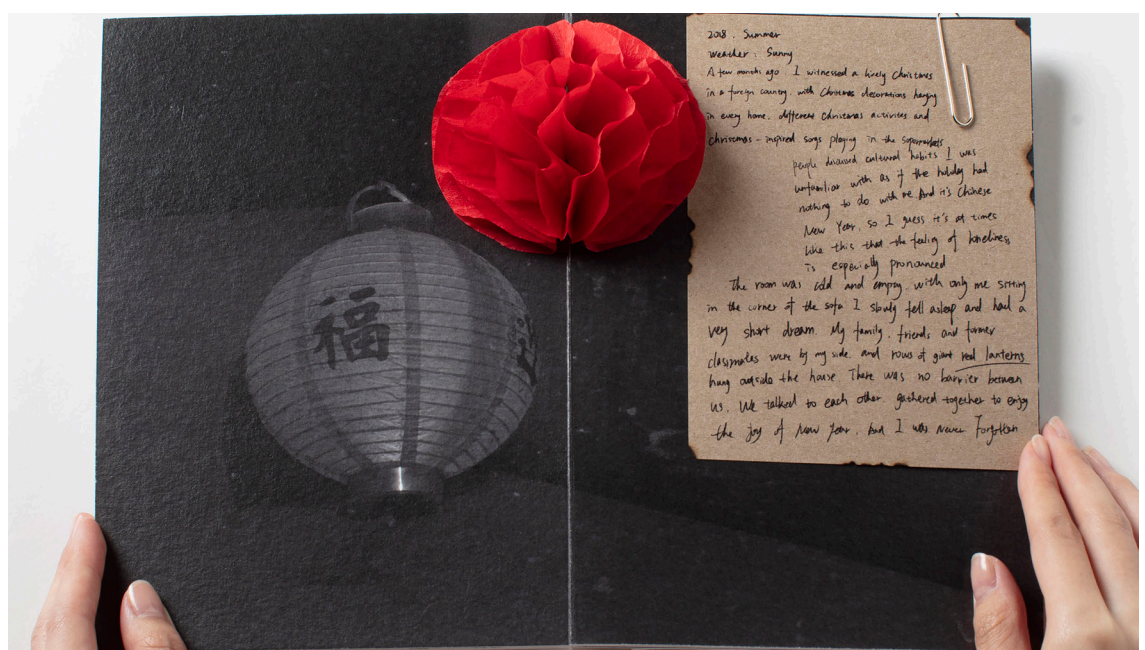 福
2018. Summer
weather: Sunny
A few months ago I witnessed a lively Christmas
in a foreign country. with Christmas decorations hanging
in every home. different Christmas activities and
Christmas-inspired songs playing in the supermarkets
people discussed cultural habits I was
unfamiliar with as if the holiday had
nothing to do with me. And it's Chinese
New Year, so I guess it's at times
like this that the feeling of loneliness
is especially pronounced
The room was cold and empty. with only me sitting
in the corner of the sofa I slowly fell asleep and had a
very short dream. My family. friends and former
classmates were by my side. and rows of giant red lanterns
hung outside the house. There was no barrier between
us. We talked to each other. gathered together to enjoy
the joy of New Year. And I was never Forgotten